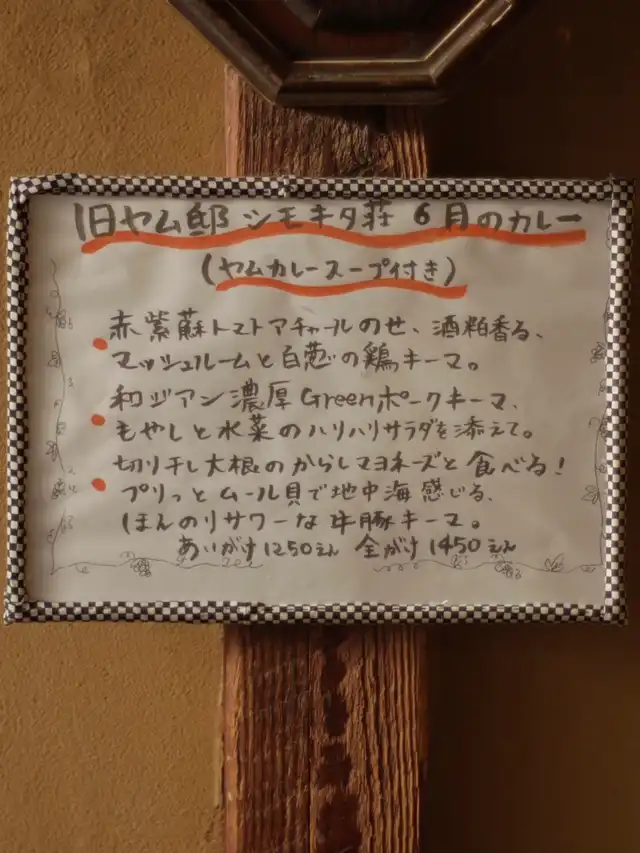 旧ヤム邸 シモキタ荘 6月のカレー
(ヤムカレースープ付き)
赤紫蘇トマトアチャールのせ、酒粕香る、
マッシュルームと白葱の鶏キーマ。
和ジアン濃厚Greenポークキーマ、
もやしと水菜のハリハリサラダを添えて。
切り干し大根のからしマヨネーズと食べる!
プリっとムール貝で地中海感じる、
ほんのりサワーな牛豚キーマ。
あいがけ1250えん 全がけ1450えん